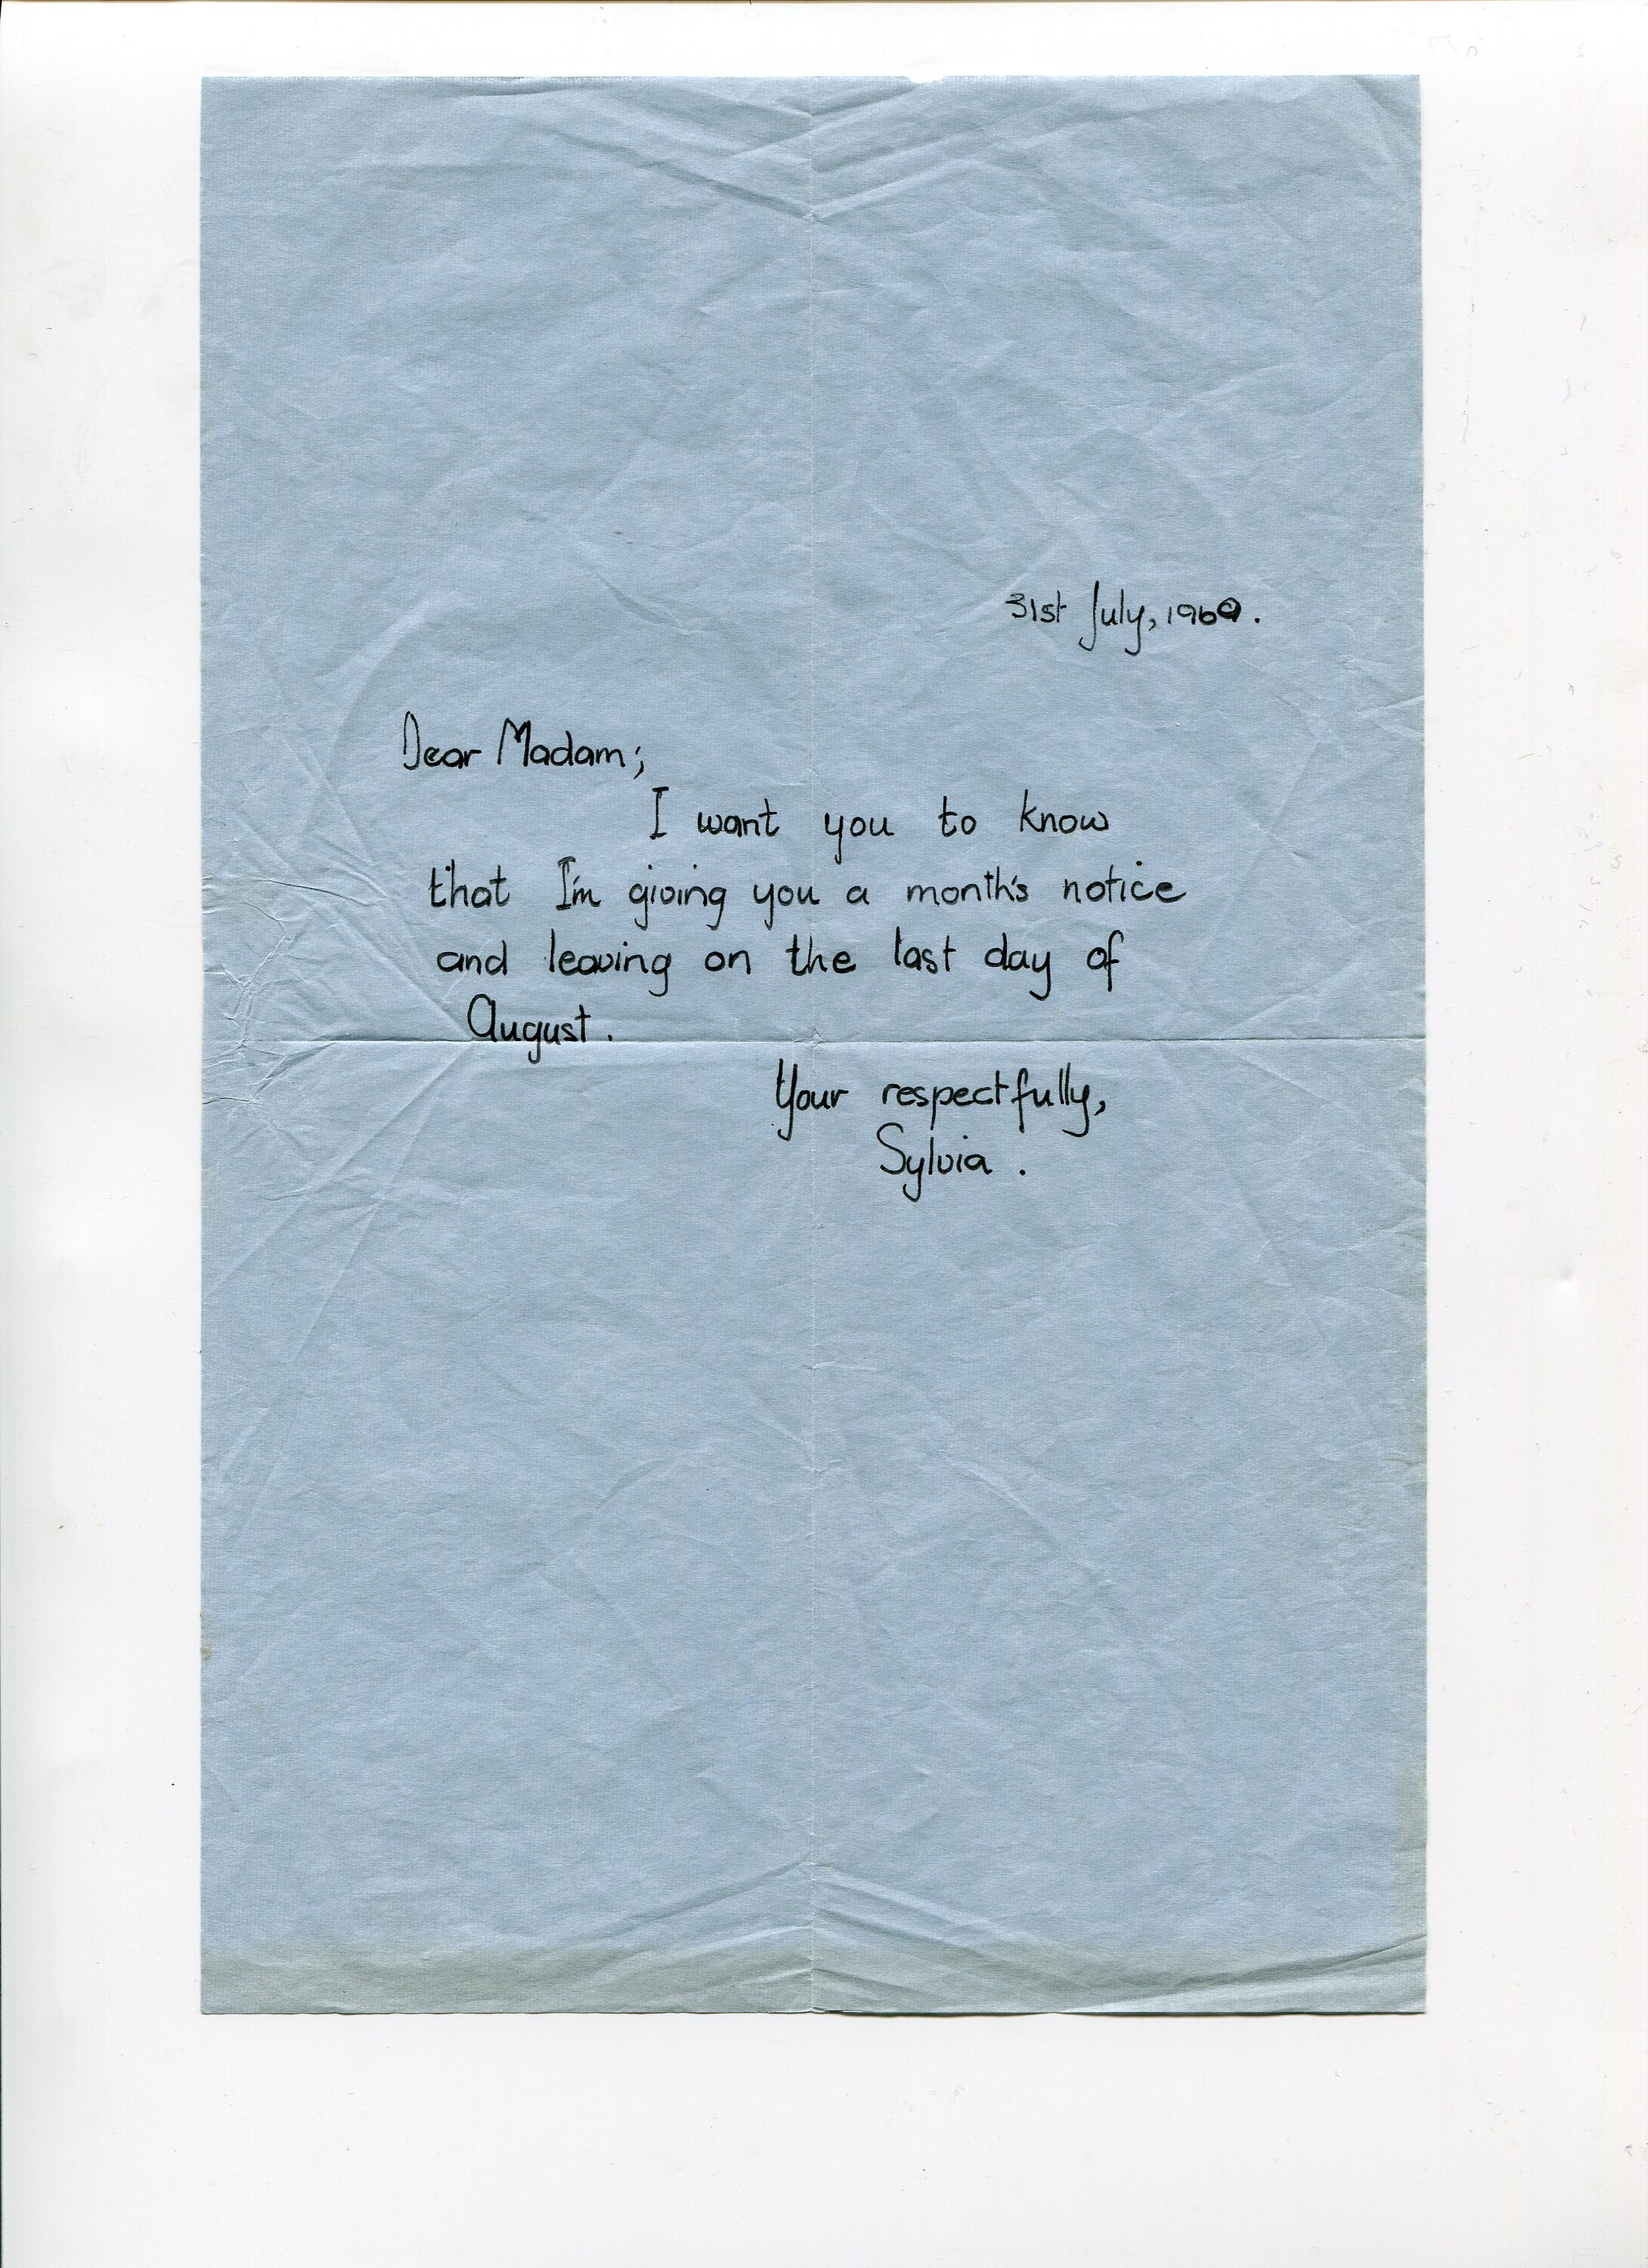 31st July, 1969.
Dear Madam;
I want you to know
that I'm giving you a month's notice
and leaving on the last day of
August.
Your respectfully,
Sylvia.